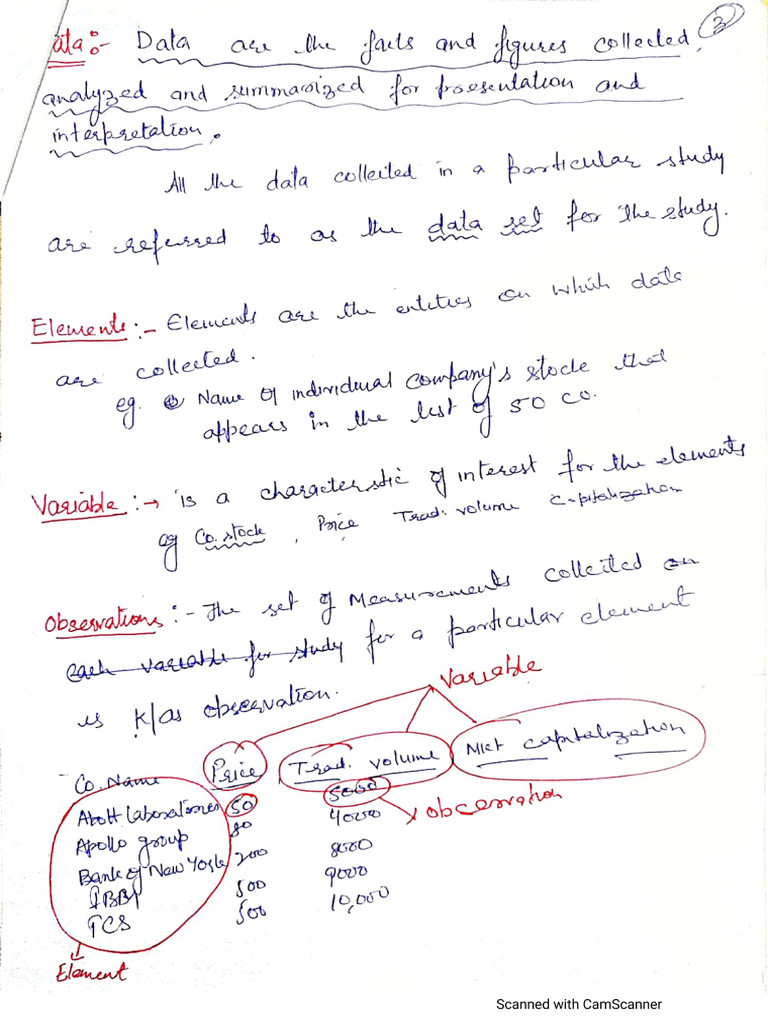 3
ata:- Data are the facts and figures collected,
analyzed and summarized for presentation and
interpretation.
All the data collected in a particular study
are referred to as the data set for the study.
Elements:- Elements are the entities on which data
are collected.
eg. Name of individual company's stock that
appears in the list of 50 co.
Variable:→ is a characteristic of interest for the elements
eg Co. stock, Price Trad. volume Capitalization
Observations:- The set of Measurements collected on
each variable for study for a particular element
is k/as observation.
Variable
Co. Name Price Trad. volume Mkt capitalization
Abott laboratories 50 5000
observation
Apollo group 80 4000
Bank of New York 200 8000
500 9000
TCS 500 10,000
Element
Scanned with CamScanner